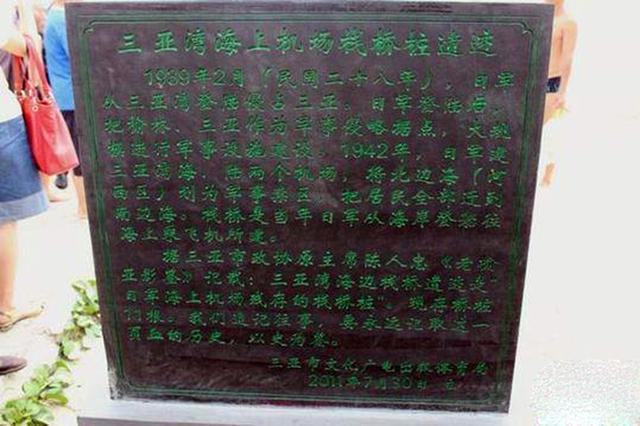 三亚湾海上机场栈桥桩遗迹
1939年2月(民国二十八年),日军
从三亚湾登陆侵占三亚。日军登陆后,
把榆林、三亚作为军事侵略据点,大规
模进行军事设施建设。1942年,日军建
三亚湾海、陆两个机场,将北边海(河
西区)划为军事禁区,把居民全部迁到
南边海。栈桥是当年日军从海岸登架往
海上乘飞机所建。
据三亚市政协原主席陈人忠《老榆
亚影墓》记载:三亚湾海边栈桥遗迹是“
日军海上机场残存的栈桥桩”。现存桥桩
11根。我们追记往事,要永远记取这一
页血的历史,以史为鉴。
三亚市文化广电出版体育局
2011年7月30日 立